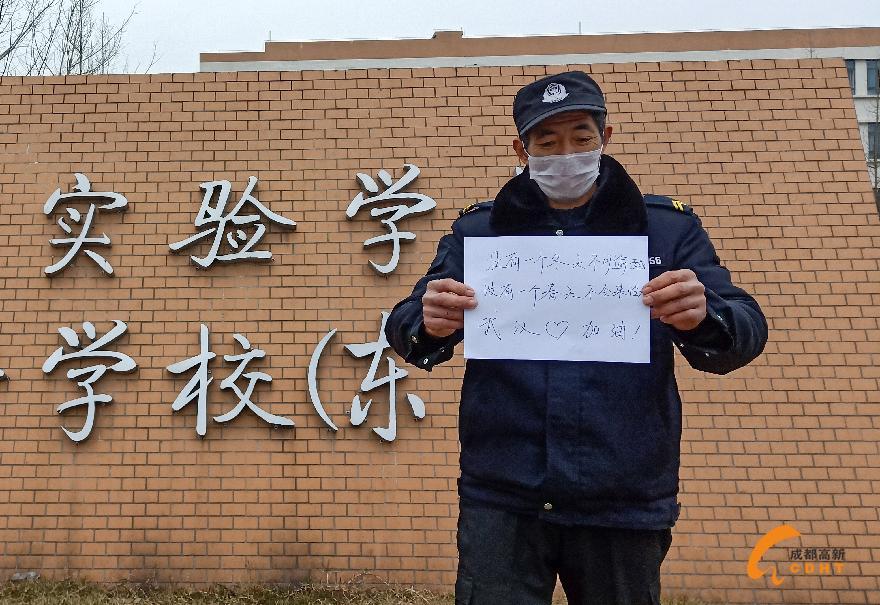 实验学
学校(东
没有一个冬天不可逾越
56
没有一个春天不会来临
武汉♡加油!
成都高新
CDHT